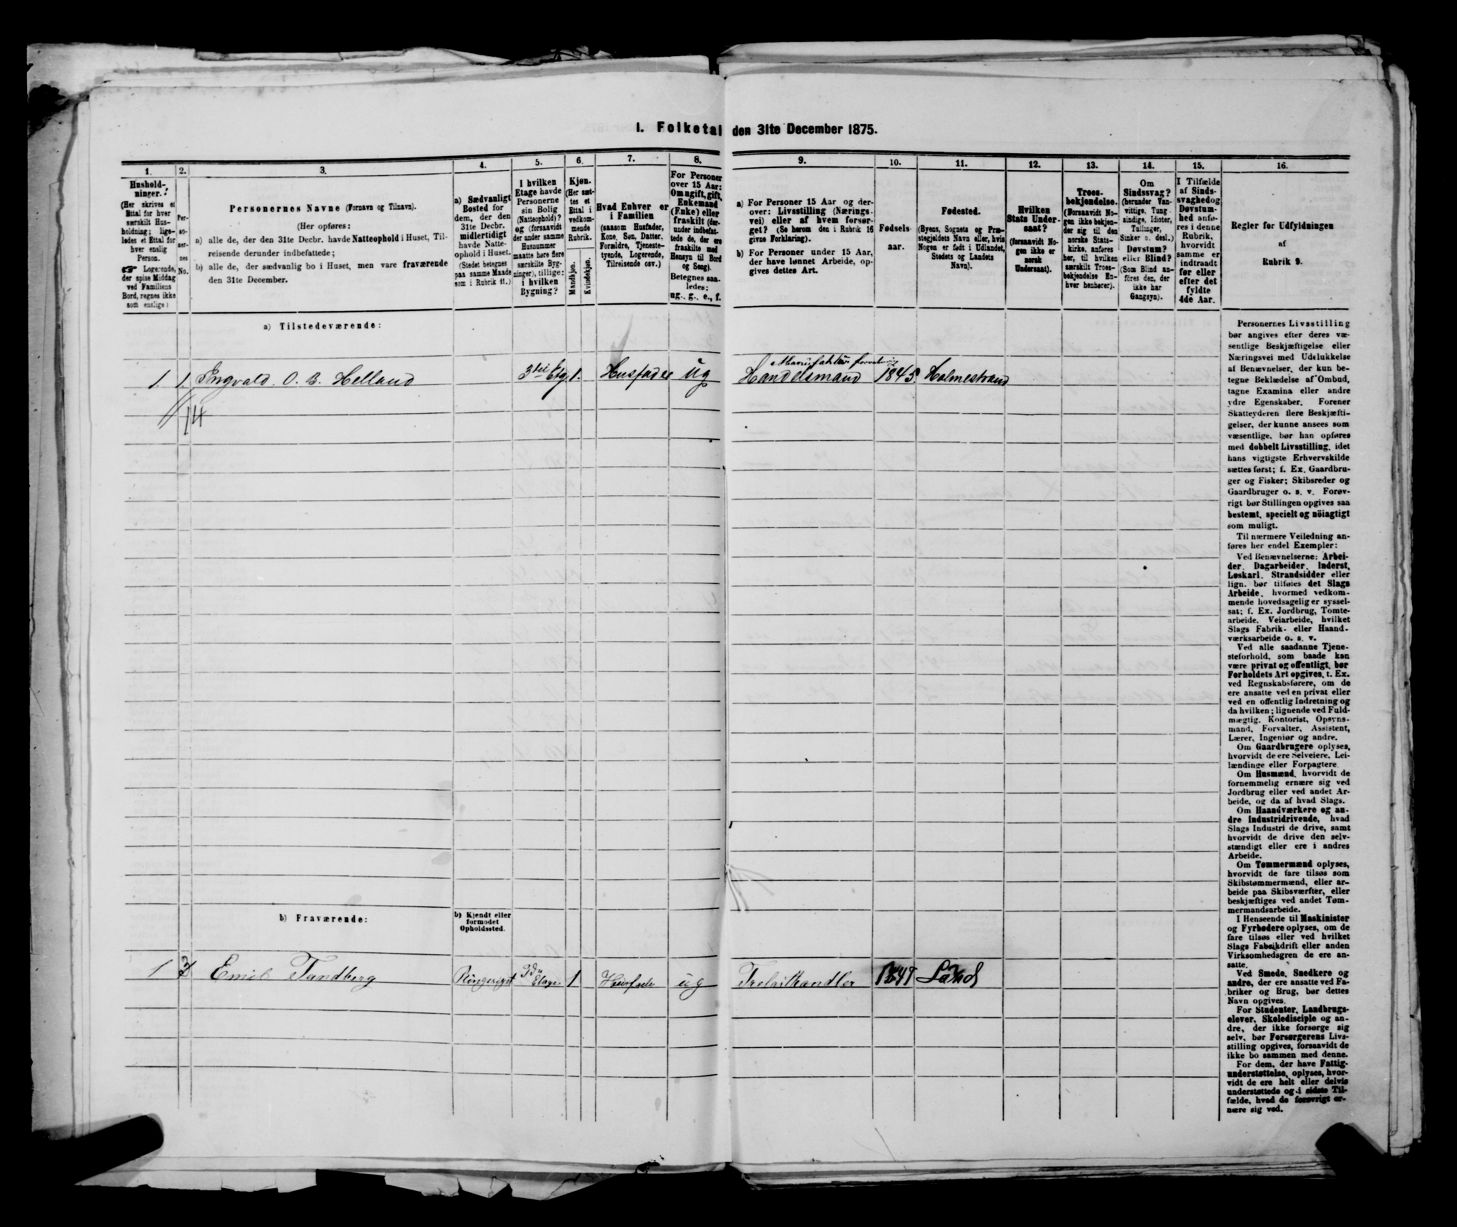 I. Folketal den 31te December 1875.
1. 2. 3. 4. 5. 6. 7. 8. 9. 10. 11. 12. 13. 14. 15. 16.
Hushold-
ninger.
(Her skrives et
Ettal for hver
særskilt Hus-
holdning; lige-
ledes et Ettal for
hver enslig
Person.
☛ Logerende,
der spise Middag
ved Familiens
Bord, regnes ikke
som enslige.)
Per-
so-
ner-
nes
No.
Personernes Navne (Fornavn og Tilnavn).
(Her opføres:
a) alle de, der den 31te Decbr. havde Natteophold i Huset, Til-
reisende derunder indbefattede;
b) alle de, der sædvanlig bo i Huset, men vare fraværende
den 31te December.
a) Sædvanligt
Bosted for
dem, der den
31te Decbr.
midlertidigt
havde Natte-
ophold i Huset.
(Stedet betegnes
paa samme Maade
som i Rubrik 11.)
I hvilken
Etage havde
Personerne
sin Bolig
(Natteophold)?
og (forsaavidt
der under samme
Husnummer
maatte høre flere
særskilte Byg-
ninger), tillige:
i hvilken
Bygning?
Kjøn.
(Her sæt-
tes et
Ettal i
vedkom-
mende
Rubrik.
Mandkjøn.
Kvindekjøn.
Hvad Enhver er
i Familien
(saasom Husfader,
Kone, Søn, Datter,
Forældre, Tjeneste-
tyende, Logerende,
Tilreisende osv.)
For Personer
over 15 Aar:
Om ugift, gift,
Enkemand
(Enke) eller
fraskilt (der-
under indbefat-
tede de, der ere
fraskilte med
Hensyn til Bord
og Seng).
Betegnes saa-
ledes:
ug., g., e., f.
a) For Personer 15 Aar og der-
over: Livsstilling (Nærings-
vei) eller af hvem forsør-
get? (Se herom den i Rubrik 16
givne Forklaring).
b) For Personer under 15 Aar,
der have lønnet Arbeide, op-
gives dettes Art.
Fødsels-
aar.
Fødested.
(Byens, Sognets og Præ-
stegjeldets Navn eller, hvis
Nogen er født i Udlandet,
Stedets og Landets
Navn).
Hvilken
Stats Under-
saat?
(forsaavidt No-
gen ikke er
norsk
Undersaat).
Troes-
bekjendelse.
(Forsaavidt No-
gen ikke bekjen-
der sig til den
norske Stats-
kirke, anføres
her, til hvilken
særskilt Troes-
bekjendelse En-
hver henhører).
Om
Sindssvag?
(herunder Van-
vittige, Tung-
sindige, Idioter,
Tullinger,
Sinker o. desl.)
eller Blind?
Døvstum?
(Som Blind an-
føres den, der
ikke har
Gangsyn).
I Tilfælde
af Sinds-
svaghed og
Døvstum-
hed anfø-
res i denne
Rubrik,
hvorvidt
samme er
indtraadt
før eller
efter det
fyldte
4de Aar.
Regler for Udfyldningen
af
Rubrik 9.
a) Tilstedeværende:
1 1 Ingvald. O. B. Helland 3die Etg. 1. Husfader ug Handelsmand 1845. Holmestrand
14
b) Fraværende:
b) Kjendt eller
formodet
Opholdssted.
1 2 Emil Tandberg Ringeriget 3die Etage 1 Husfader ug Trelasthandler 1847 Land
Personernes Livsstilling
bør angives efter deres væ-
sentlige Beskjæftigelse eller
Næringsvei med Udelukkelse
af Benævnelser, der kun be-
tegne Beklædelse af Ombud,
tagne Examina eller andre
ydre Egenskaber. Forener
Skatteyderen flere Beskjæfti-
gelser, der kunne ansees som
væsentlige, bør han opføres
med dobbelt Livsstilling, idet
hans vigtigste Erhvervskilde
sættes først; f. Ex. Gaardbru-
ger og Fisker; Skibsreder og
Gaardbruger o. s. v. Forøv-
rigt bør Stillingen opgives saa
bestemt, specielt og nöiagtigt
som muligt.
Til nærmere Veiledning an-
føres her endel Exempler:
Ved Benævnelserne: Arbei-
der, Dagarbeider, Inderst,
Løskarl, Strandsidder eller
lign. bør tilføies det Slags
Arbeide, hvormed vedkom-
mende hovedsagelig er syssel-
sat; f. Ex. Jordbrug, Tomte-
arbeide, Veiarbeide, hvilket
Slags Fabrik- eller Haand-
værksarbeide o. s. v.
Ved alle saadanne Tjene-
steforhold, som baade kan
være privat og offentligt, bør
Forholdets Art opgives, t. Ex.
ved Regnskabsførere, om de
ere ansatte ved en privat eller
ved en offentlig Indretning og
da hvilken; lignende ved Fuld-
mægtig, Kontorist, Opsyns-
mand, Forvalter, Assistent,
Lærer, Ingeniør og andre.
Om Gaardbrugere oplyses,
hvorvidt de ere Selveiere, Lei-
lændinge eller Forpagtere.
Om Husmænd, hvorvidt de
fornemmelig ernære sig ved
Jordbrug eller ved andet Ar-
beide, og da af hvad Slags.
Om Haandværkere og an-
dre Industridrivende, hvad
Slags Industri de drive, samt
hvorvidt de drive den selv-
stændigt eller ere i andres
Arbeide.
Om Tømmermænd oplyses,
hvorvidt de fare tilsøs som
Skibstømmermænd, eller ar-
beide paa Skibsværfter, eller
beskjæftiges ved andet Tøm-
mermandsarbeide.
I Henseende til Maskinister
og Fyrbødere oplyses, om de
fare tilsøs eller ved hvilket
Slags Fabrikdrift eller anden
Virksomhedsgren de ere an-
satte.
Ved Smede, Snedkere og
andre, der ere ansatte ved Fa-
briker og Brug, bør dettes
Navn opgives.
For Studenter, Landbrugs-
elever, Skoledisciple og an-
dre, der ikke forsørge sig
selv, bør Forsørgerens Livs-
stilling opgives, forsaavidt de
ikke bo sammen med denne.
For dem, der have Fattig-
understøttelse, oplyses, hvor-
vidt de ere helt eller delvis
understøttede og i sidste Til-
fælde, hvad de forøvrigt er-
nære sig ved.